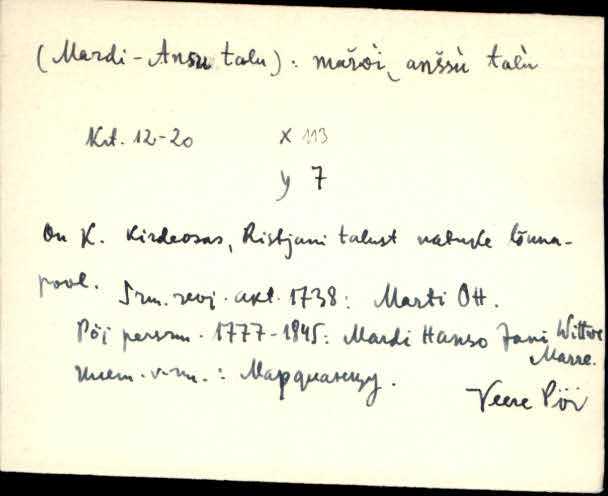 (Mardi-Ansu talu): mar̆di, anšsù talù
Krt. 12-20 X 113
y 7
On K. Kirdeosas, Ristjani talust natuke lõuna-
pool. Srm. revj. akt. 1738: Marti Ott.
Pöj persrm. 1777-1845: Mardi Hanso Jani Wittwe
Marre.
: Мардиансу.
Veere Pöi